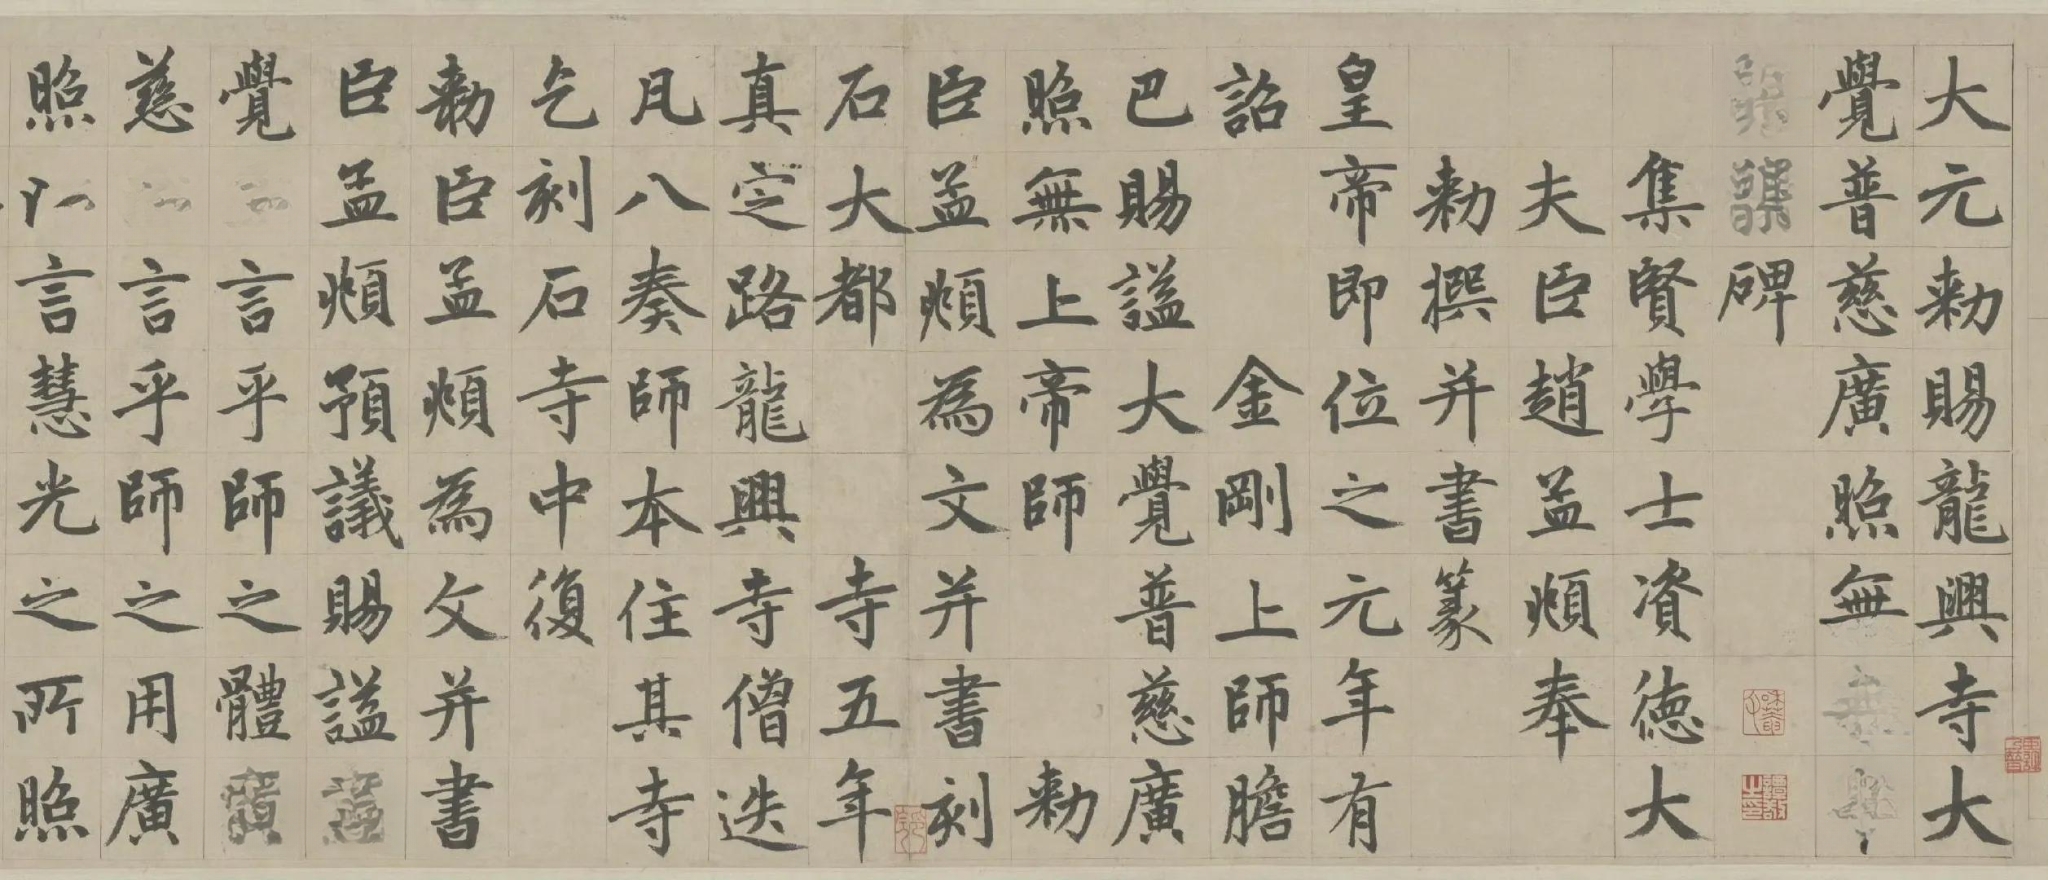 大元勅賜龍興寺大
覺普慈廣照無
碑
集賢學士資德大
夫臣趙孟頫奉
勅撰并書篆
皇帝即位之元年有
詔金剛上師膽
巴賜謚大覺普慈廣
照無上帝師勅
臣孟頫為文并書刻
石大都寺五年
真定路龍興寺僧迭
凡八奏師本住其寺
乞刻石寺中復
勅臣孟頫為文并書
臣孟頫預議賜謚
覺言乎師之體
慈言乎師之用廣
照言慧光之所照